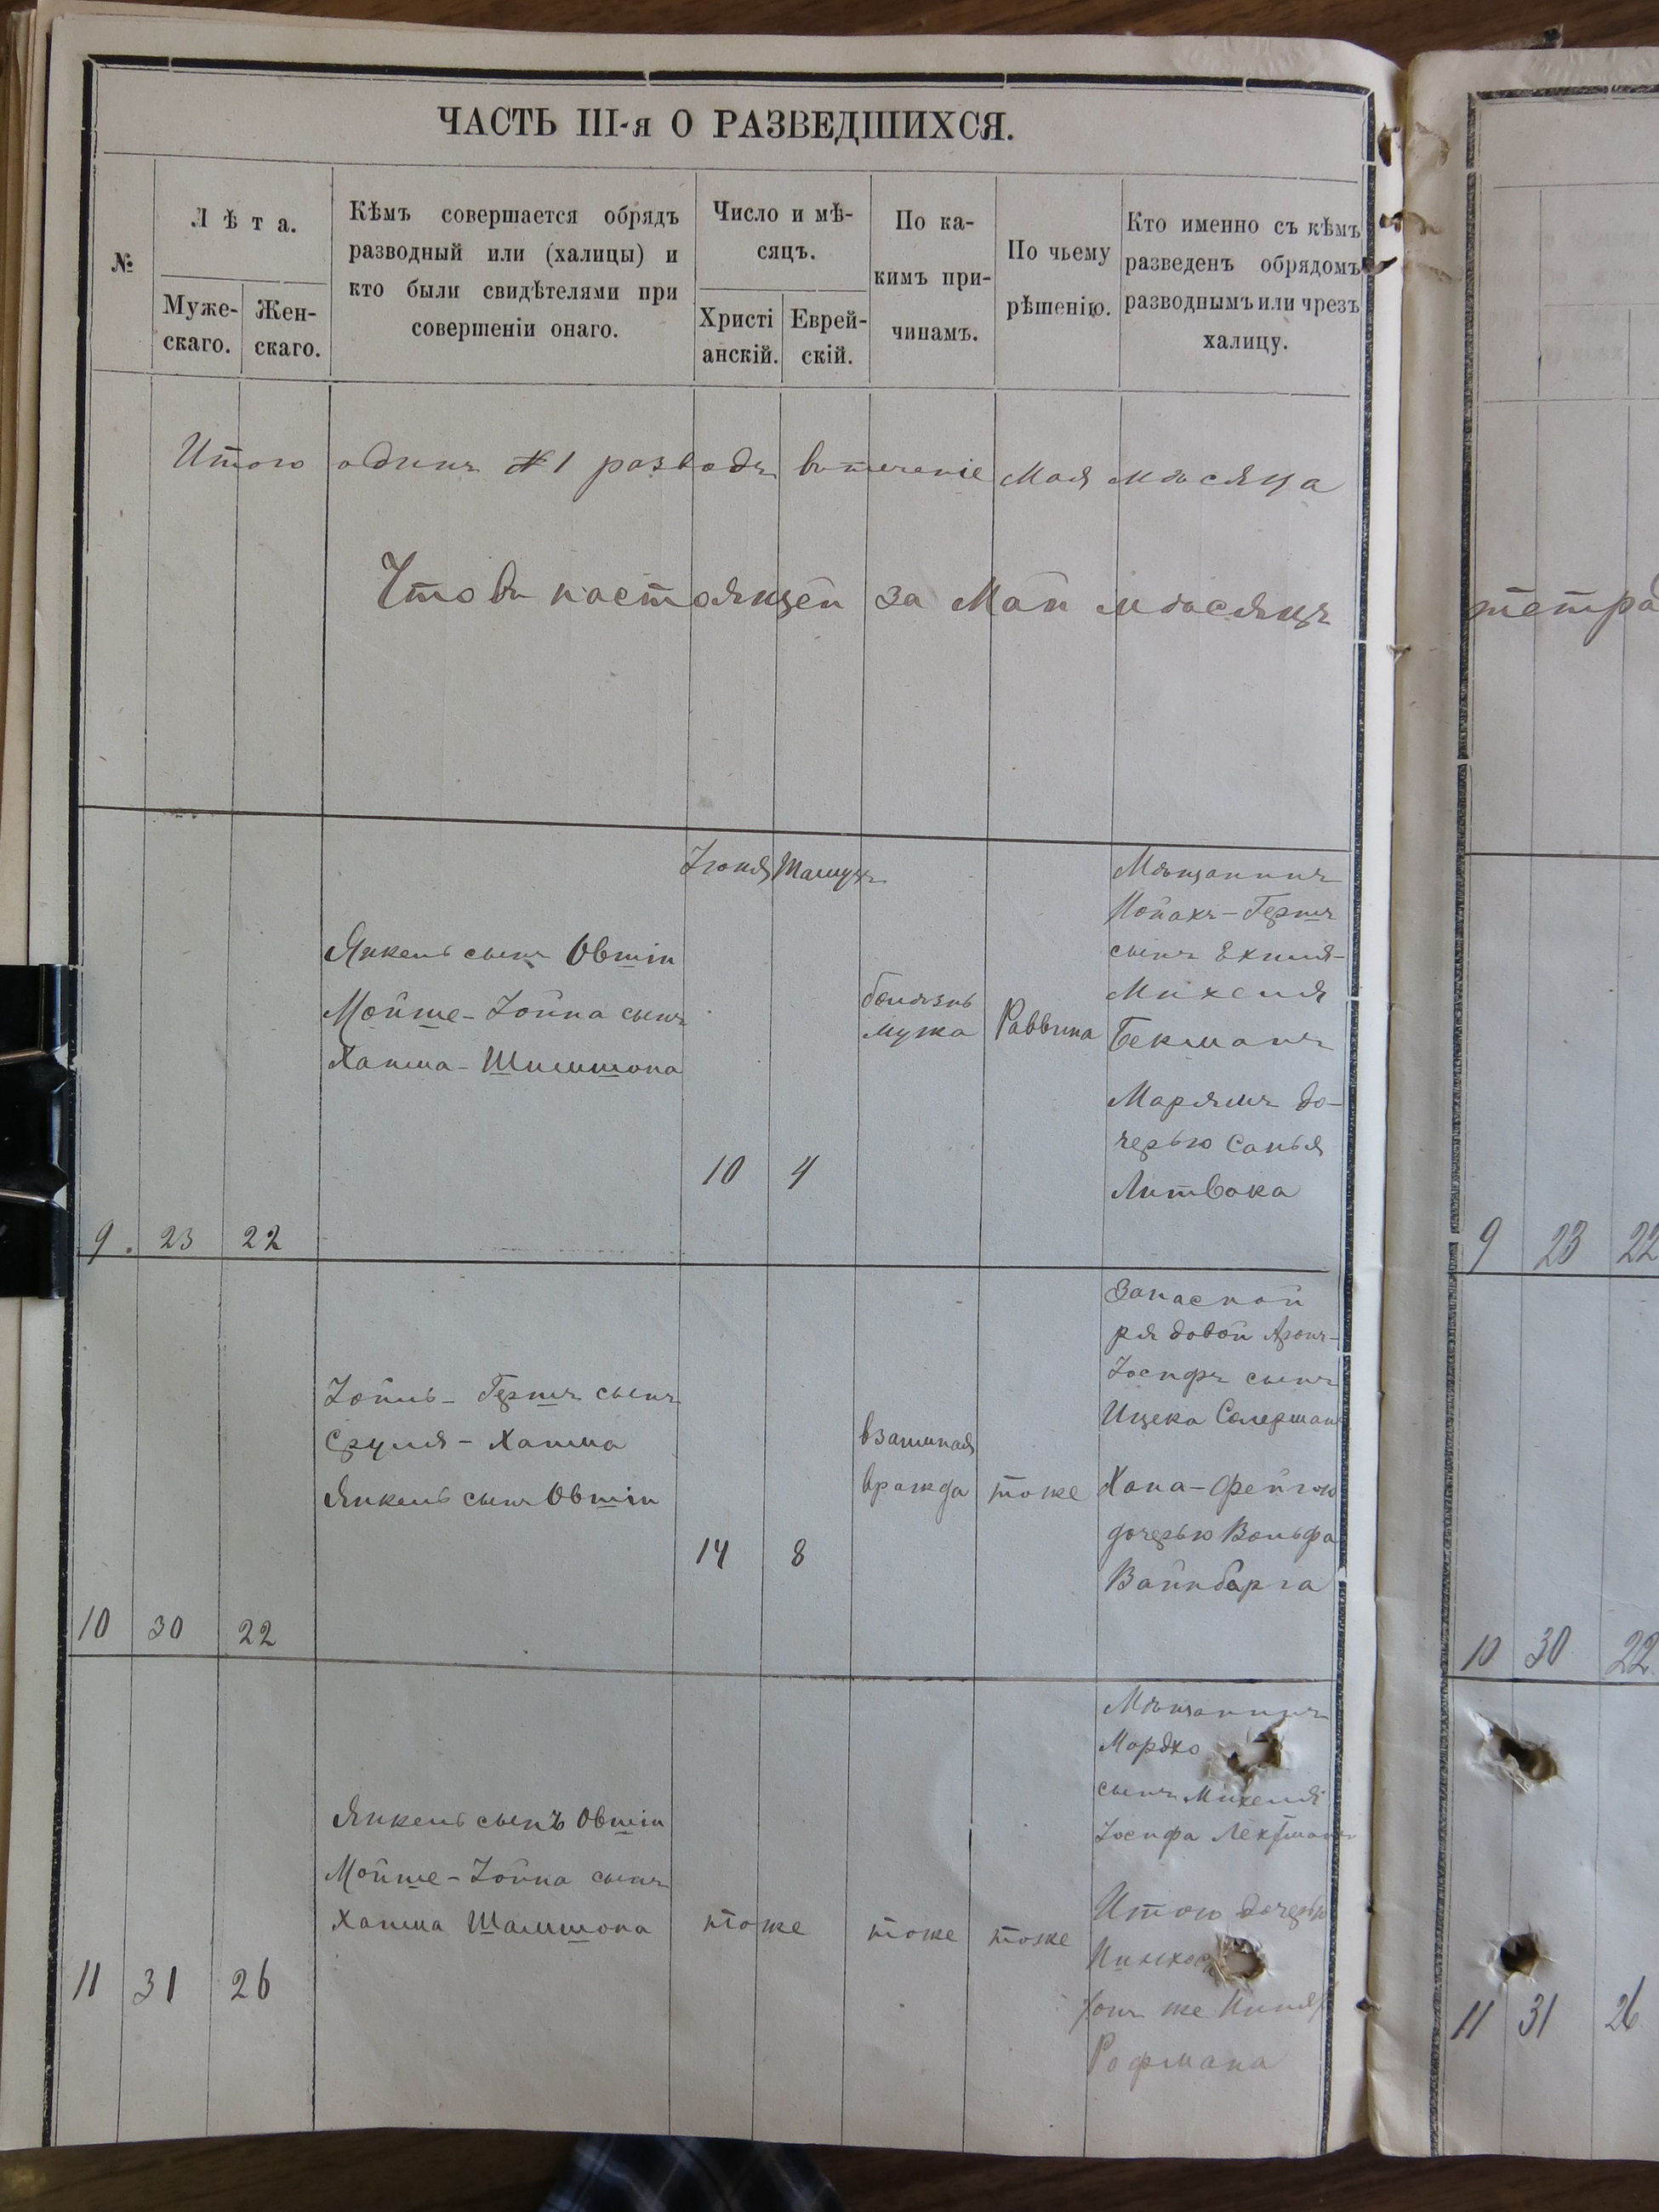 ЧАСТЬ III-я О РАЗВЕДШИХСЯ.
№
Лѣта.
Муже-
скаго.
Жен-
скаго.
Кѣмъ совершается обрядъ
разводный или (халицы) и
кто были свидѣтелями при
совершеніи онаго.
Число и мѣ-
сяцъ.
Христі
анскій.
Еврей-
скій.
По ка-
кимъ при-
чинамъ.
По чьему
рѣшенію.
Кто именно съ кѣмъ
разведенъ обрядомъ
разводнымъ или чрезъ
халицу.
Итого одинъ №1 разводъ втеченіе Мая мѣсяца
Что въ настоящей за Май мѣсяцъ
тетра
9. 23 22
Янкель сынъ Овшін
Мойше-Іойна сынъ
Хаима-Шимшона
Іюня Тамуз
10 4
болѣзнь
мужа
Раввина
Мѣщанинъ
Герш
сынъ Ехиля-
Михеля
Бекманъ
Марямъ до-
черью Санья
Литвака
9 23 22
10 30 22
Іойль-Гершъ сынъ
Сруля-Хаима
Янкель сынъ Овшін
14 8
взаимная
вражда
тоже
Запасной
рядовой Аронъ-
Іосифъ сынъ
Ицека
Хана-Фейгою
дочерью Вольфа
Вайнбарга
10 30 22
11 31 26
Янкель сынъ Овшін
Мойше-Іойна сынъ
Хаима Шамшона
тоже
тоже
тоже
Мѣщанинъ
Мордко
сынъ Михеля
Іосифа
Итою дочерью
онъ же
Рофмана
11 31 26